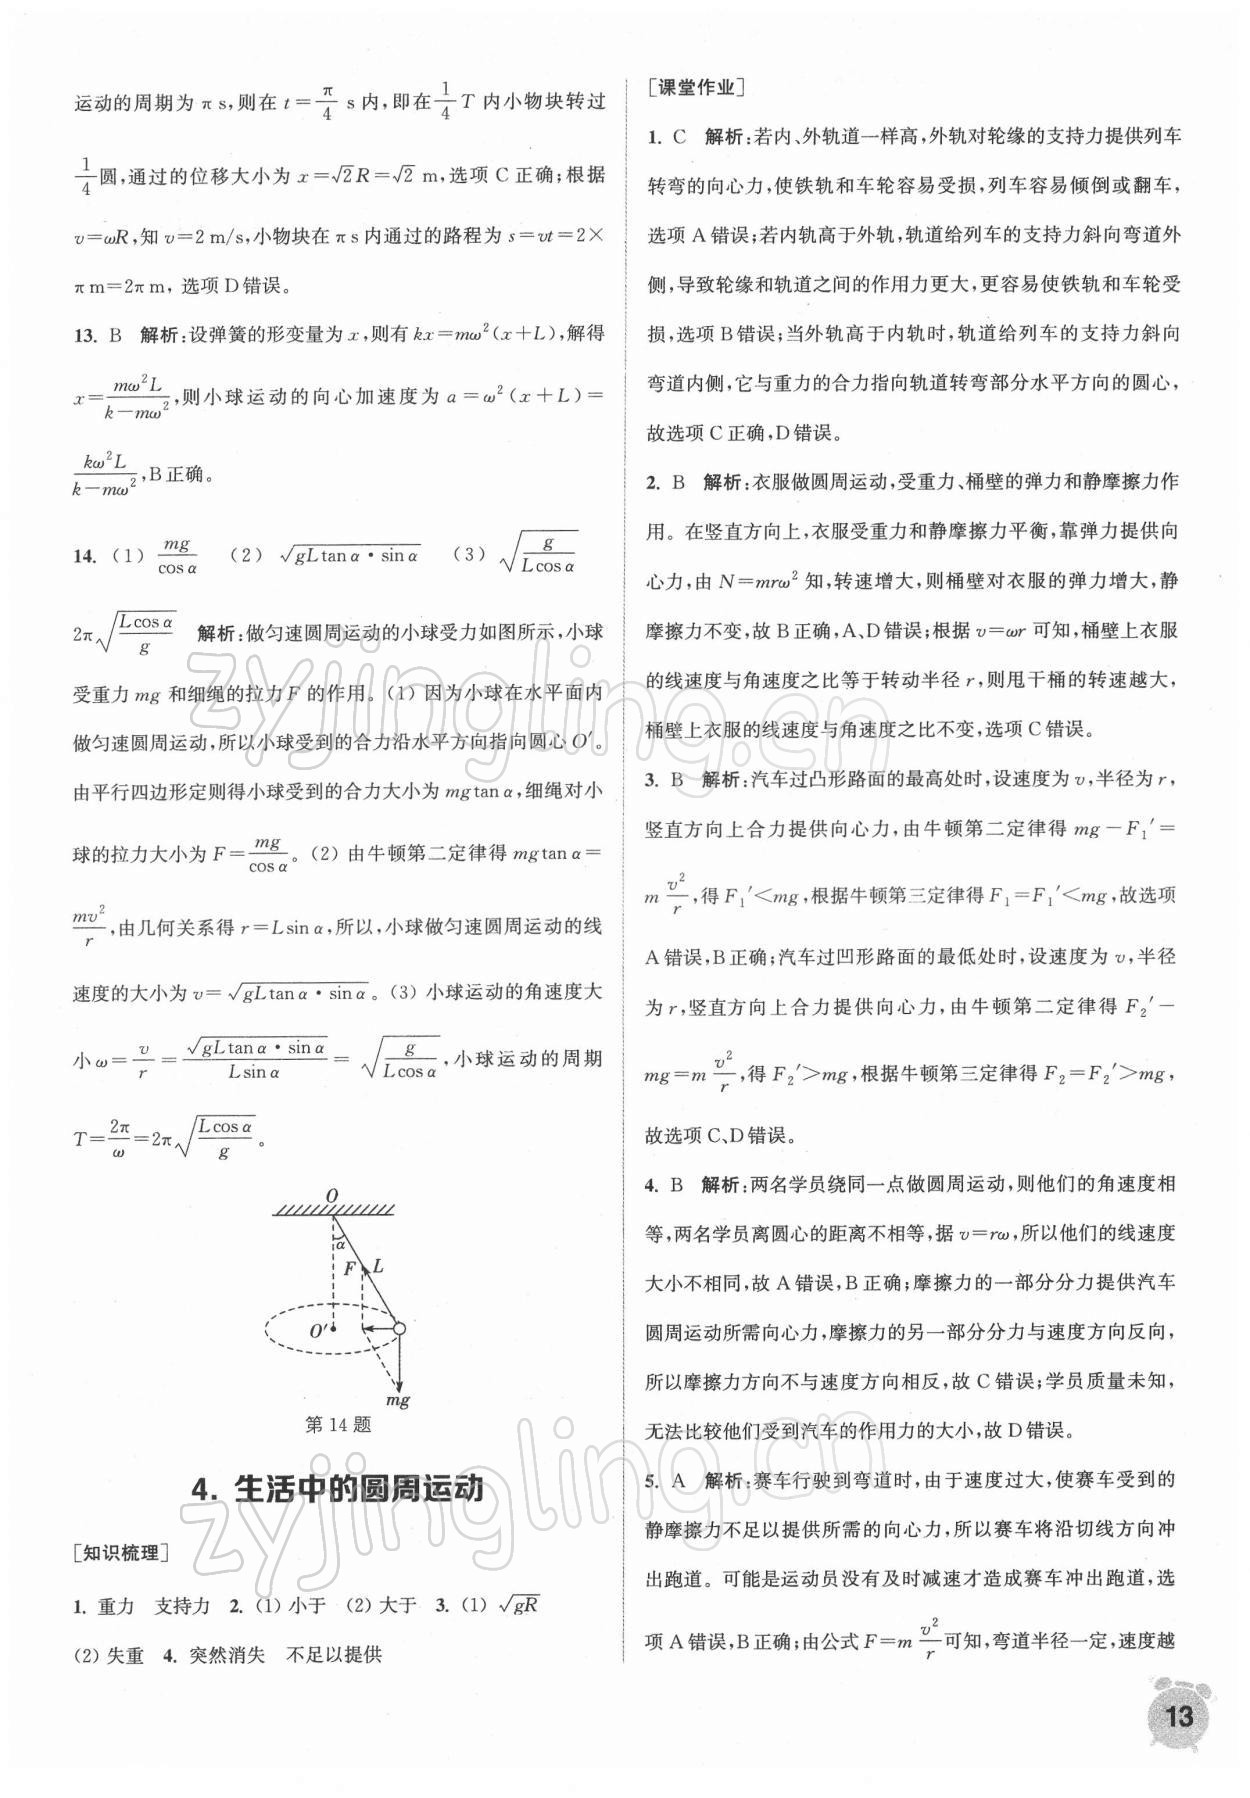 运动的周期为 π s,则在 t=π/4 s 内,即在1/4 T 内小物块转过
1/4圆,通过的位移大小为 x=√2R=√2 m,选项 C 正确;根据
v=ωR,知 v=2 m/s,小物块在 π s 内通过的路程为 s=vt=2×
π m=2π m, 选项 D 错误。
13. B 解析:设弹簧的形变量为 x,则有 kx=mω²(x+L),解得
x=mω²L/(k-mω²),则小球运动的向心加速度为 a=ω²(x+L)=
kω²L/(k-mω²),B 正确。
14. (1) mg/cos α (2) √(gLtan α·sin α) (3) √(g/(Lcos α))
2π√(Lcos α/g) 解析:做匀速圆周运动的小球受力如图所示,小球
受重力 mg 和细绳的拉力 F 的作用。(1) 因为小球在水平面内
做匀速圆周运动,所以小球受到的合力沿水平方向指向圆心 O′。
由平行四边形定则得小球受到的合力大小为 mgtan α,细绳对小
球的拉力大小为 F=mg/cos α。(2) 由牛顿第二定律得 mgtan α=
mv²/r,由几何关系得 r=Lsin α,所以,小球做匀速圆周运动的线
速度的大小为 v=√(gLtan α·sin α)。(3) 小球运动的角速度大
小 ω=v/r=√(gLtan α·sin α)/(Lsin α)=√(g/(Lcos α)),小球运动的周期
T=2π/ω=2π√(Lcos α/g)。
O
α
F L
O′
mg
第 14 题
4. 生活中的圆周运动
[知识梳理]
1. 重力 支持力 2. (1) 小于 (2) 大于 3. (1) √(gR)
(2) 失重 4. 突然消失 不足以提供
[课堂作业]
1. C 解析:若内、外轨道一样高,外轨对轮缘的支持力提供列车
转弯的向心力,使铁轨和车轮容易受损,列车容易倾倒或翻车,
选项 A 错误;若内轨高于外轨,轨道给列车的支持力斜向弯道外
侧,导致轮缘和轨道之间的作用力更大,更容易使铁轨和车轮受
损,选项 B 错误;当外轨高于内轨时,轨道给列车的支持力斜向
弯道内侧,它与重力的合力指向轨道转弯部分水平方向的圆心,
故选项 C 正确,D 错误。
2. B 解析:衣服做圆周运动,受重力、桶壁的弹力和静摩擦力作
用。在竖直方向上,衣服受重力和静摩擦力平衡,靠弹力提供向
心力,由 N=mrω² 知,转速增大,则桶壁对衣服的弹力增大,静
摩擦力不变,故 B 正确,A、D 错误;根据 v=ωr 可知,桶壁上衣服
的线速度与角速度之比等于转动半径 r,则甩干桶的转速越大,
桶壁上衣服的线速度与角速度之比不变,选项 C 错误。
3. B 解析:汽车过凸形路面的最高处时,设速度为 v,半径为 r,
竖直方向上合力提供向心力,由牛顿第二定律得 mg-F₁′=
m v²/r,得 F₁′<mg,根据牛顿第三定律得 F₁=F₁′<mg,故选项
A 错误,B 正确;汽车过凹形路面的最低处时,设速度为 v,半径
为 r,竖直方向上合力提供向心力,由牛顿第二定律得 F₂′-
mg=m v²/r,得 F₂′>mg,根据牛顿第三定律得 F₂=F₂′>mg,
故选项 C、D 错误。
4. B 解析:两名学员绕同一点做圆周运动,则他们的角速度相
等,两名学员离圆心的距离不相等,据 v=rω,所以他们的线速度
大小不相同,故 A 错误,B 正确;摩擦力的一部分分力提供汽车
圆周运动所需向心力,摩擦力的另一部分分力与速度方向反向,
所以摩擦力方向不与速度方向相反,故 C 错误;学员质量未知,
无法比较他们受到汽车的作用力的大小,故 D 错误。
5. A 解析:赛车行驶到弯道时,由于速度过大,使赛车受到的
静摩擦力不足以提供所需的向心力,所以赛车将沿切线方向冲
出跑道。可能是运动员没有及时减速才造成赛车冲出跑道,选
项 A 错误,B 正确;由公式 F=m v²/r 可知,弯道半径一定,速度越
13
zyjingling.cn
zyjingling.cn